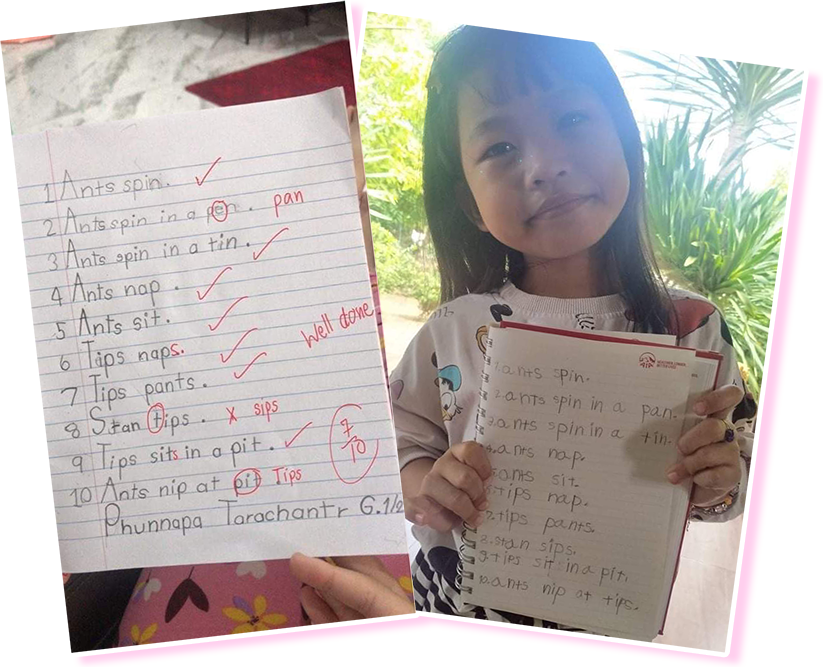 1 Ants spin.
2 Ants spin in a pen. pan
3 Ants spin in a tin.
4 Ants nap.
5 Ants sit.
6 Tips naps.
7 Tips pants.
Well done
8 Stan tips. x sips
9 Tips sits in a pit.
7/10
10 Ants nip at pit Tips
Phunnapa Tarachantr G.1/2
1. ants spin.
2. ants spin in a pan.
3. ants spin in a tin.
4. ants nap.
5. ants sit.
6. tips nap.
7. tips pants.
8. stan sips.
9. tips sit in a pit.
10. ants nip at tips.